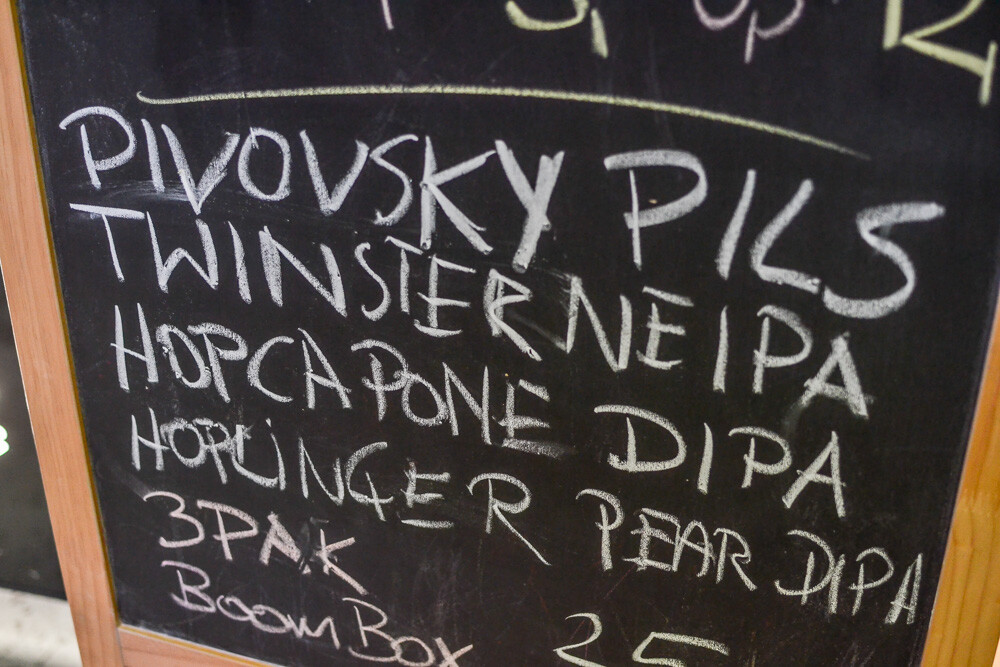 PIVOVSKY PILS
TWINSTER NEIPA
HOPCAPONE DIPA
HOPLINGER PEAR DIPA
3PAK
BOOMBOX 25